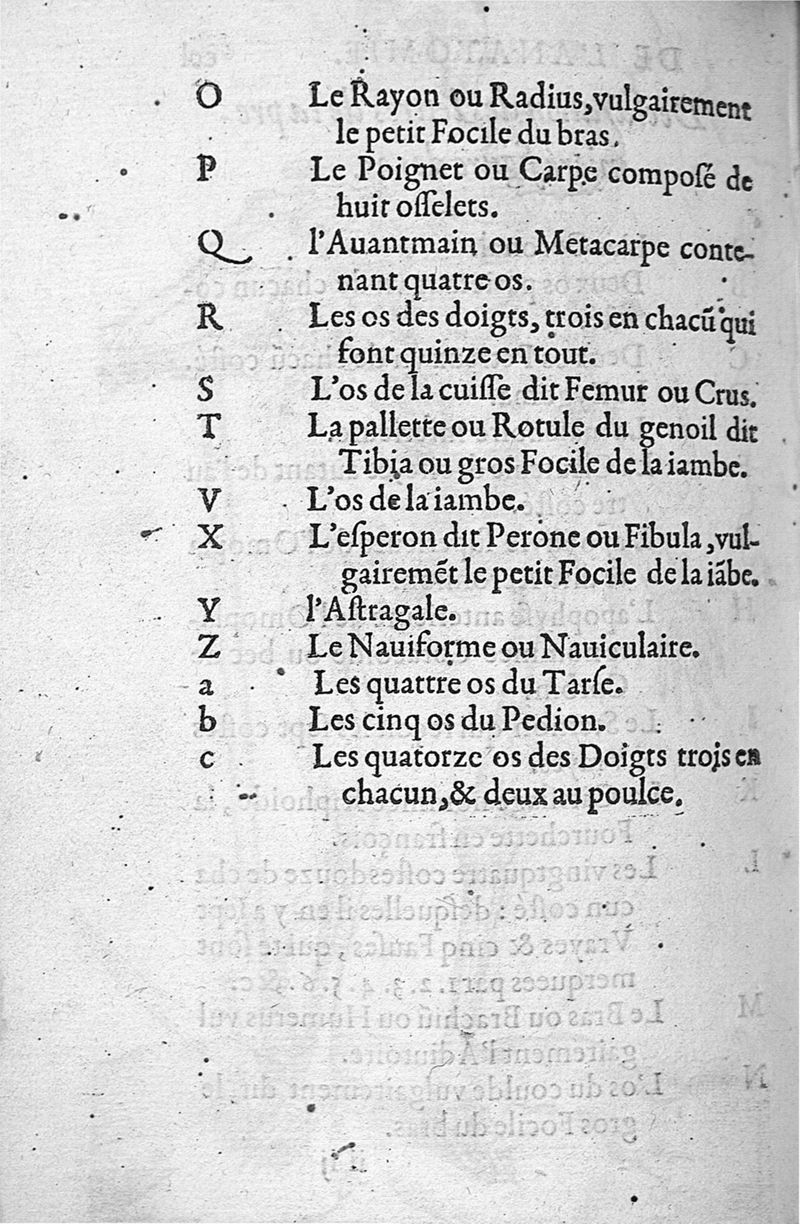 O Le Rayon ou Radius,vulgairement
le petit Focile du bras.
P Le Poignet ou Carpe composé de
huit osselets.
Q l'Auantmain ou Metacarpe conte-
nant quatre os.
R Les os des doigts, trois en chacũ qui
font quinze en tout.
S L'os de la cuisse dit Femur ou Crus.
T La pallette ou Rotule du genoil dit
Tibia ou gros Focile de la iambe.
V L'os de la iambe.
X L'esperon dit Perone ou Fibula ,vul-
gairemẽt le petit Focile de la iãbe.
Y l'Astragale.
Z Le Nauiforme ou Nauiculaire.
a Les quattre os du Tarse.
b Les cinq os du Pedion.
c Les quatorze os des Doigts trois en
chacun,& deux au poulce.